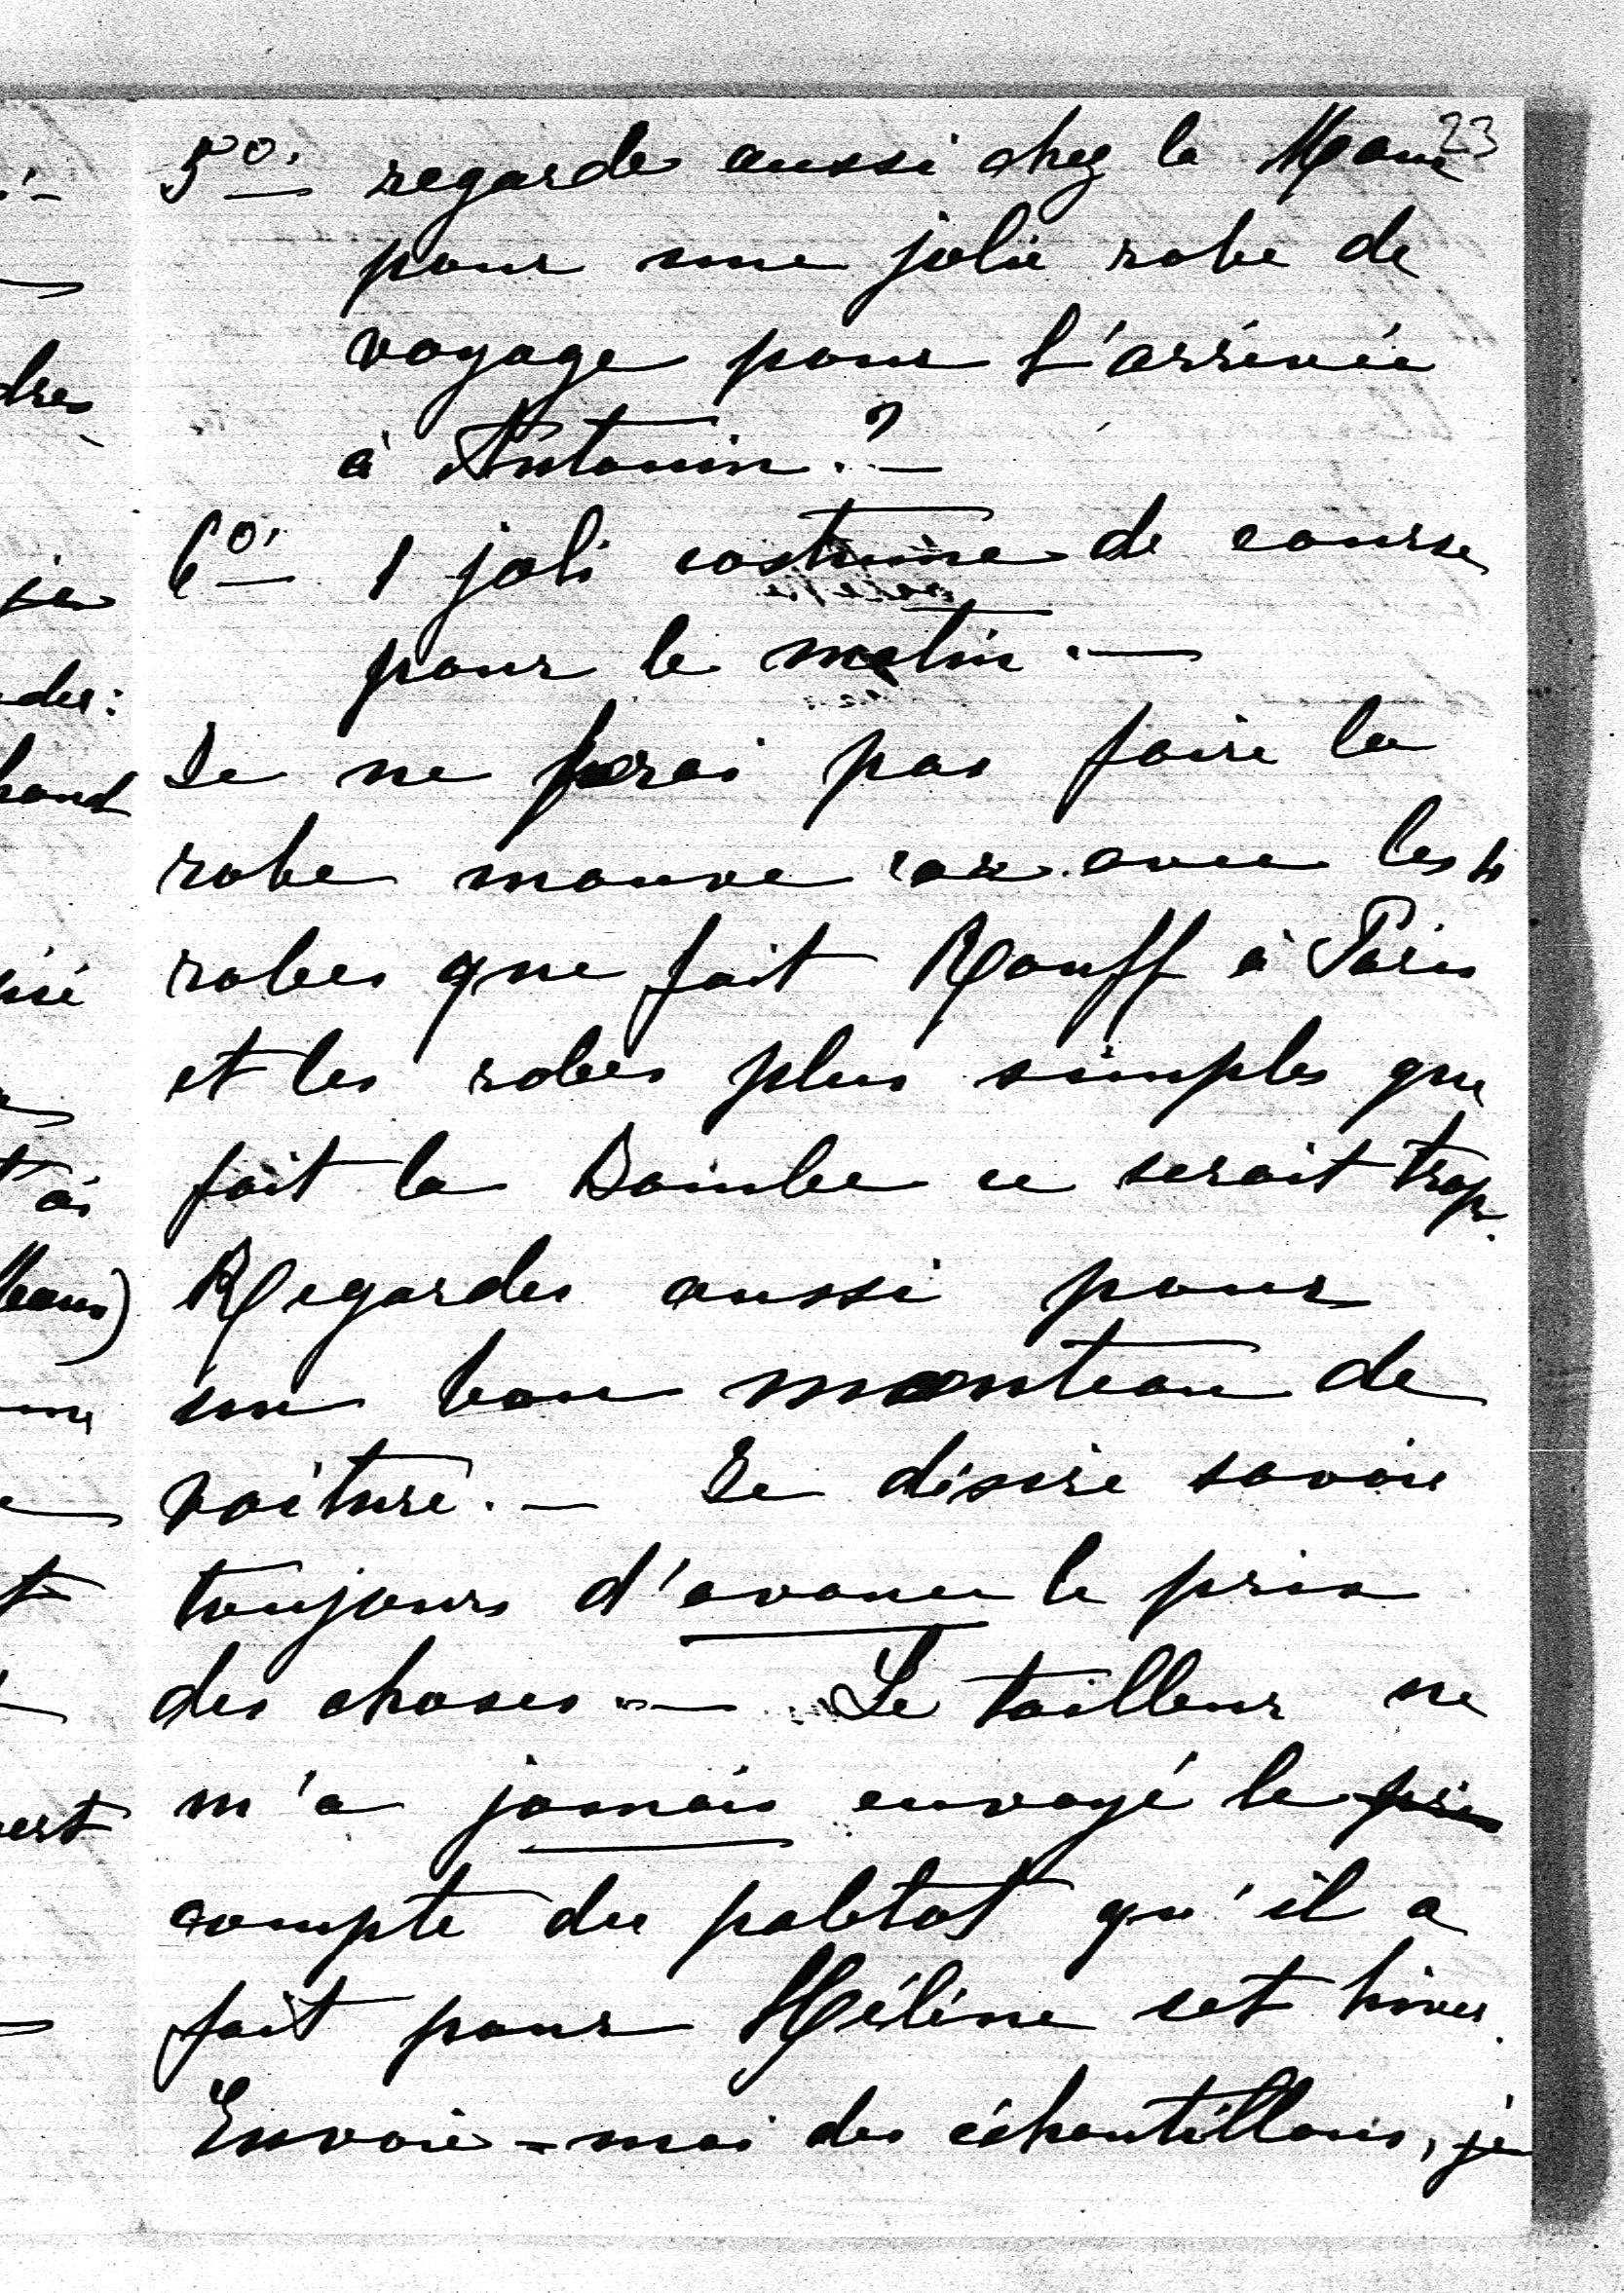 23
5o. regarde aussi chez la
pour une jolie robe de
voyage pour l'arrivée
à Antonin. ? —
6o. 1 joli costume de course
pour le matin. —
Je ne ferai pas faire la
robe mauve car avec les 4
robes que fait Rouff à Paris
et les robes plus simples que
fait la ce serait trop.
Regardes aussi pour
un bon manteau de
voiture. — Je désire savoir
toujours d'avance le prix
des choses. — Le tailleur ne
m'a jamais envoyé le prix
compte du paletot qu'il a
fait pour Hélène cet hiver.
Envoie-moi des échantillons, je